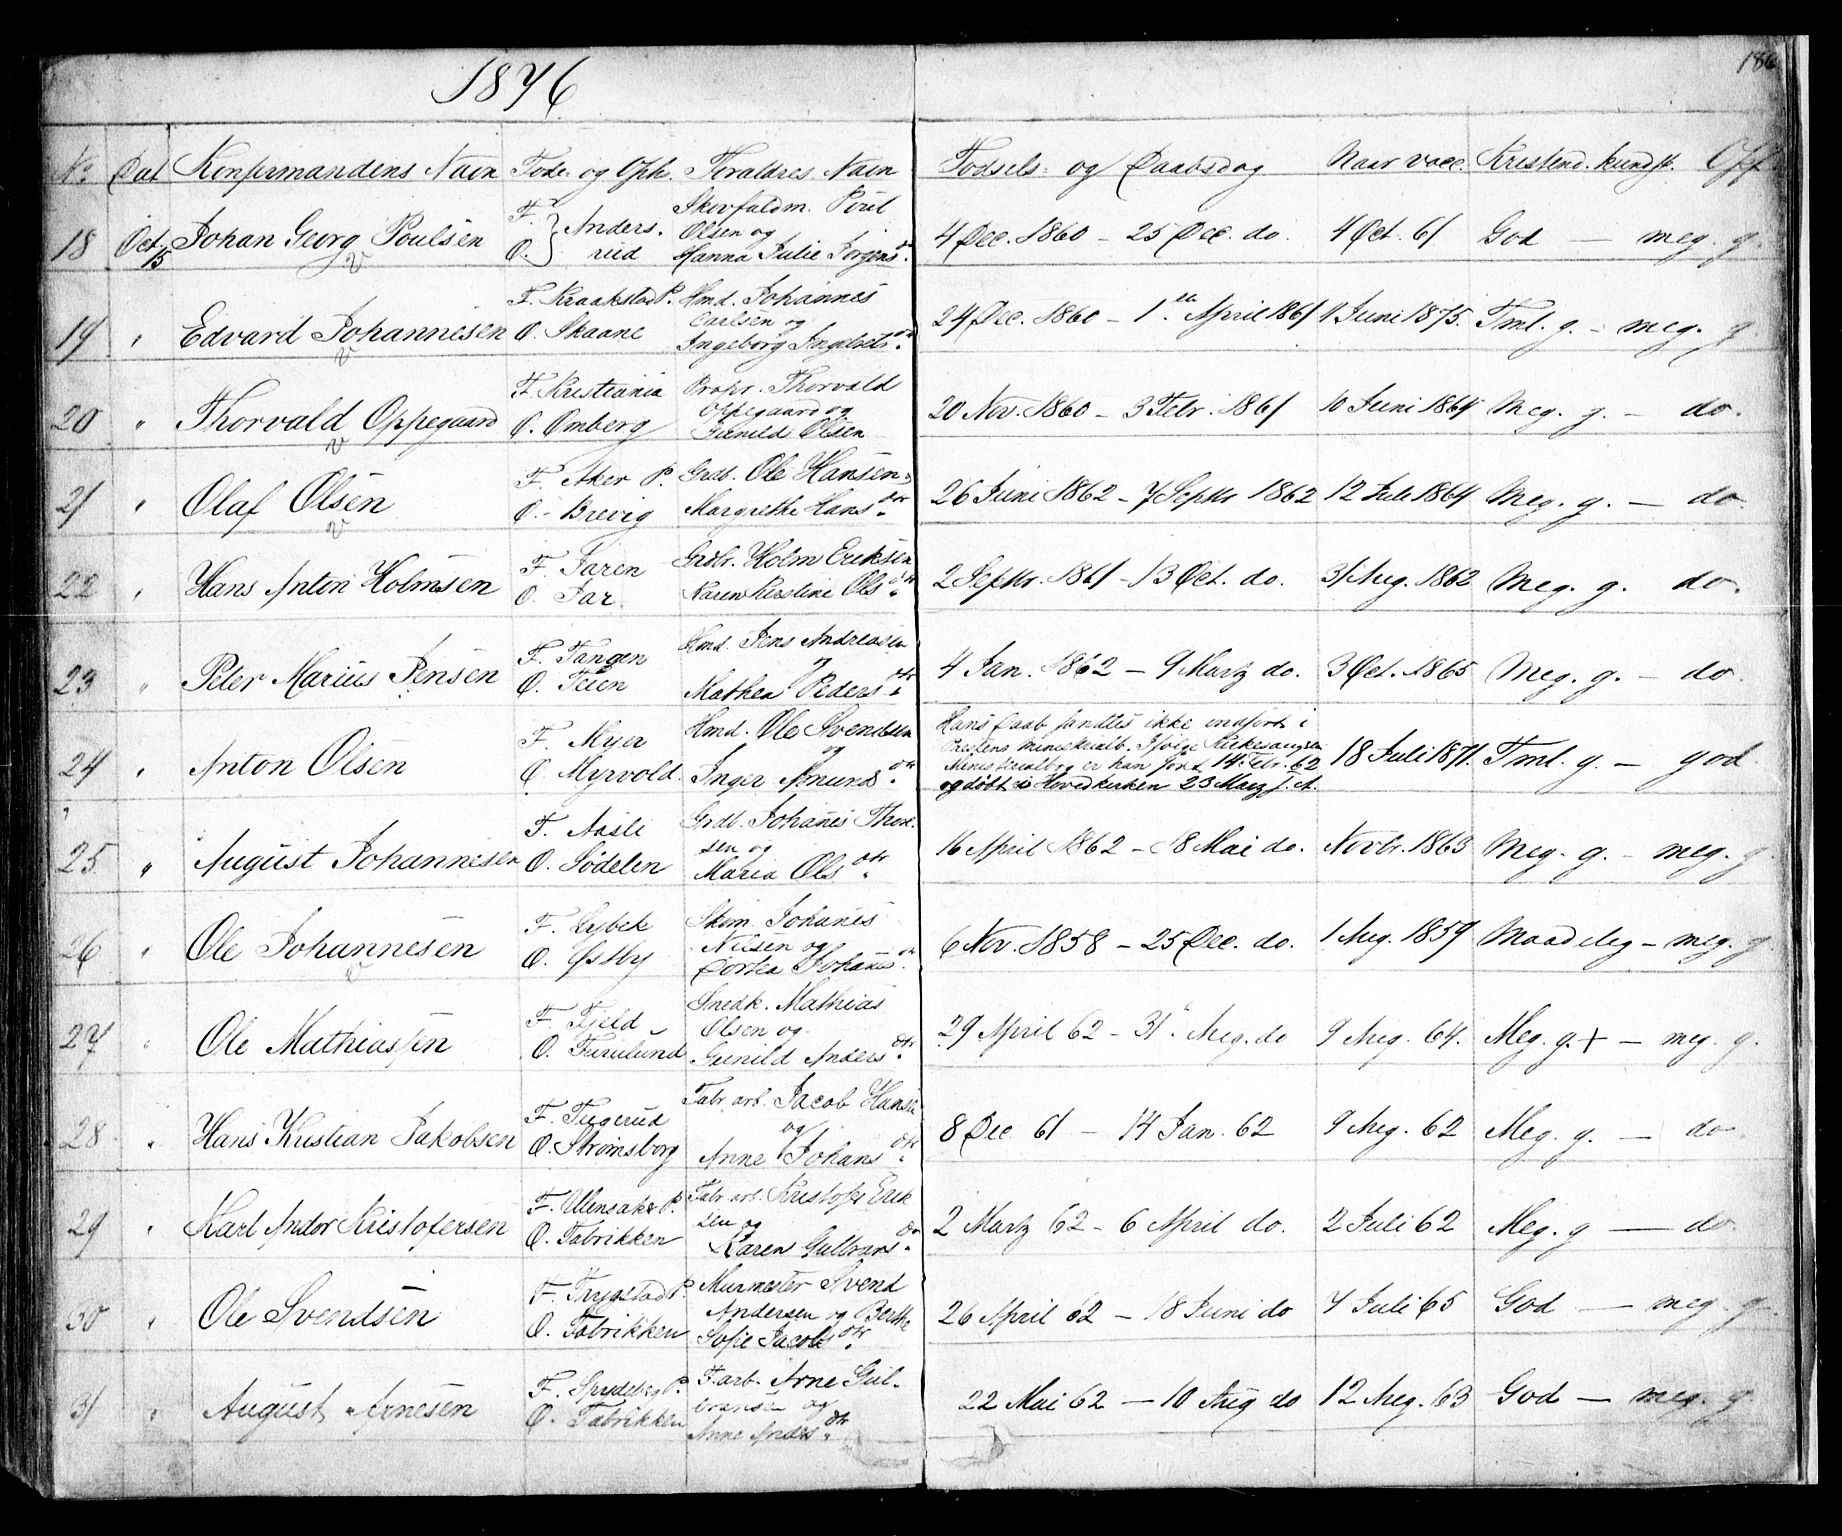 1876
186
No. Dat. Konfirmandens Navn Føde- og Oph. Foraldres Navn Fødsels- og Daabsdag Naar vacc. Kristend. kundsk. Opf.
18 Oct. 15 Johan Georg Poulsen F. O. } Andersrud Skovfuldm. Poul Olsen og Hanna Julie Jørgensdtr. 4 Dec. 1860 – 25 Dec. do. 4 Oct. 61 God — meg. g.
19 " Edvard Johannesen F. Kraakstad P. O. Skaane Hmd. Johannes Carlsen og Ingeborg Ingebretsdtr. 24 Dec. 1860 – 1ste April 1861 1 Juni 1875. Tml. g. – meg. g.
20 " Thorvald Oppegaard F. Kristiania O. Omberg Propr. Thorvald Oppegaard og Gunild Olsen 20 Nov. 1860 – 3 Febr. 1861 10 Juni 1864 Meg. g. – do.
21 " Olaf Olsen F. Aker P. O. Brevig Grdb. Ole Hansen o Margrethe Hansdtr. 26 Juni 1862 – 7 Septbr 1862 12 Juli 1864 Meg. g. – do.
22 " Hans Anton Holmsen F. Faren O. Far. Grdbr. Holm Eriksen Karen Kirstine Olsdtr. 2 Septbr. 1861 – 13 Oct. do. 31 Aug. 1862 Meg. g. do.
23 " Peter Marius Jensen F. Tangen O. Teien Hmd. Jens Andreasen og Mathea Pedersdtr. 4 Jan. 1862 – 9 Martz do. 3 Oct. 1865 Meg. g. – do.
24 " Anton Olsen F. Myer O. Myrvold. Hmd. Ole Svendsen og Inger Amundsdtr. Hans Daab fandtes ikke indført i Prestens ministerialb. Ifølge Kirkesangerens Ministerialbog er han født 14 Febr. 62 og døbt i Hovedkirken 23 Martz s. A. 18 Juli 1871. Tml. g. – god
25 " August Johannesen F. Aasli O. Sødelen Grdb. Johanes Thorsen og Maria Olsdtr. 16 April 1862 – 18 Mai do. Novbr. 1863 Meg. g. – meg. g.
26 " Ole Johannesen F. Lybek O. Østby Skom. Johanes Nilsen og Dortea Johanesdtr. 6 Nov. 1858 – 25 Dec. do. 1 Aug. 1859 Maadelig – meg. g.
27 " Ole Mathiassen F. Fjeld O. Furulund Snedk. Mathias Olsen og Gunild Andersdtr. 29 April 62 – 31 Aug. do 9 Aug. 64. Meg. g. + – meg. g.
28 " Hans Kristian Jakobsen F. Tugerud O. Strømsborg Fabr. arb. Jacob Hansen og Anne Johansdtr. 8 Dec 61 – 14 Jan. 62 9 Aug. 62 Meg. g. – do
29 " Karl Andor Kristofersen F. Ullensaker P. O. Fabrikken Fabr. arb. Kristofer Eriksen og Karen Gulbransdtr. 2 Martz 62 – 6 April do. 2 Juli 62 Meg. g — do.
30 " Ole Svendsen F. Trygstad P. O. Fabrikken Murmester Svend Andersen og Berthe Sofie Jacobsdtr. 26 April 62 – 18 Juni do 4 Juli 65 God — meg. g.
31 " August Arnesen F. Spydeberg P. O. Fabrikken F. arb. Arne Gulbransen og Anne Andersdtr. 22 Mai 62 – 10 Aug do 12 Aug. 63 God — meg. g.